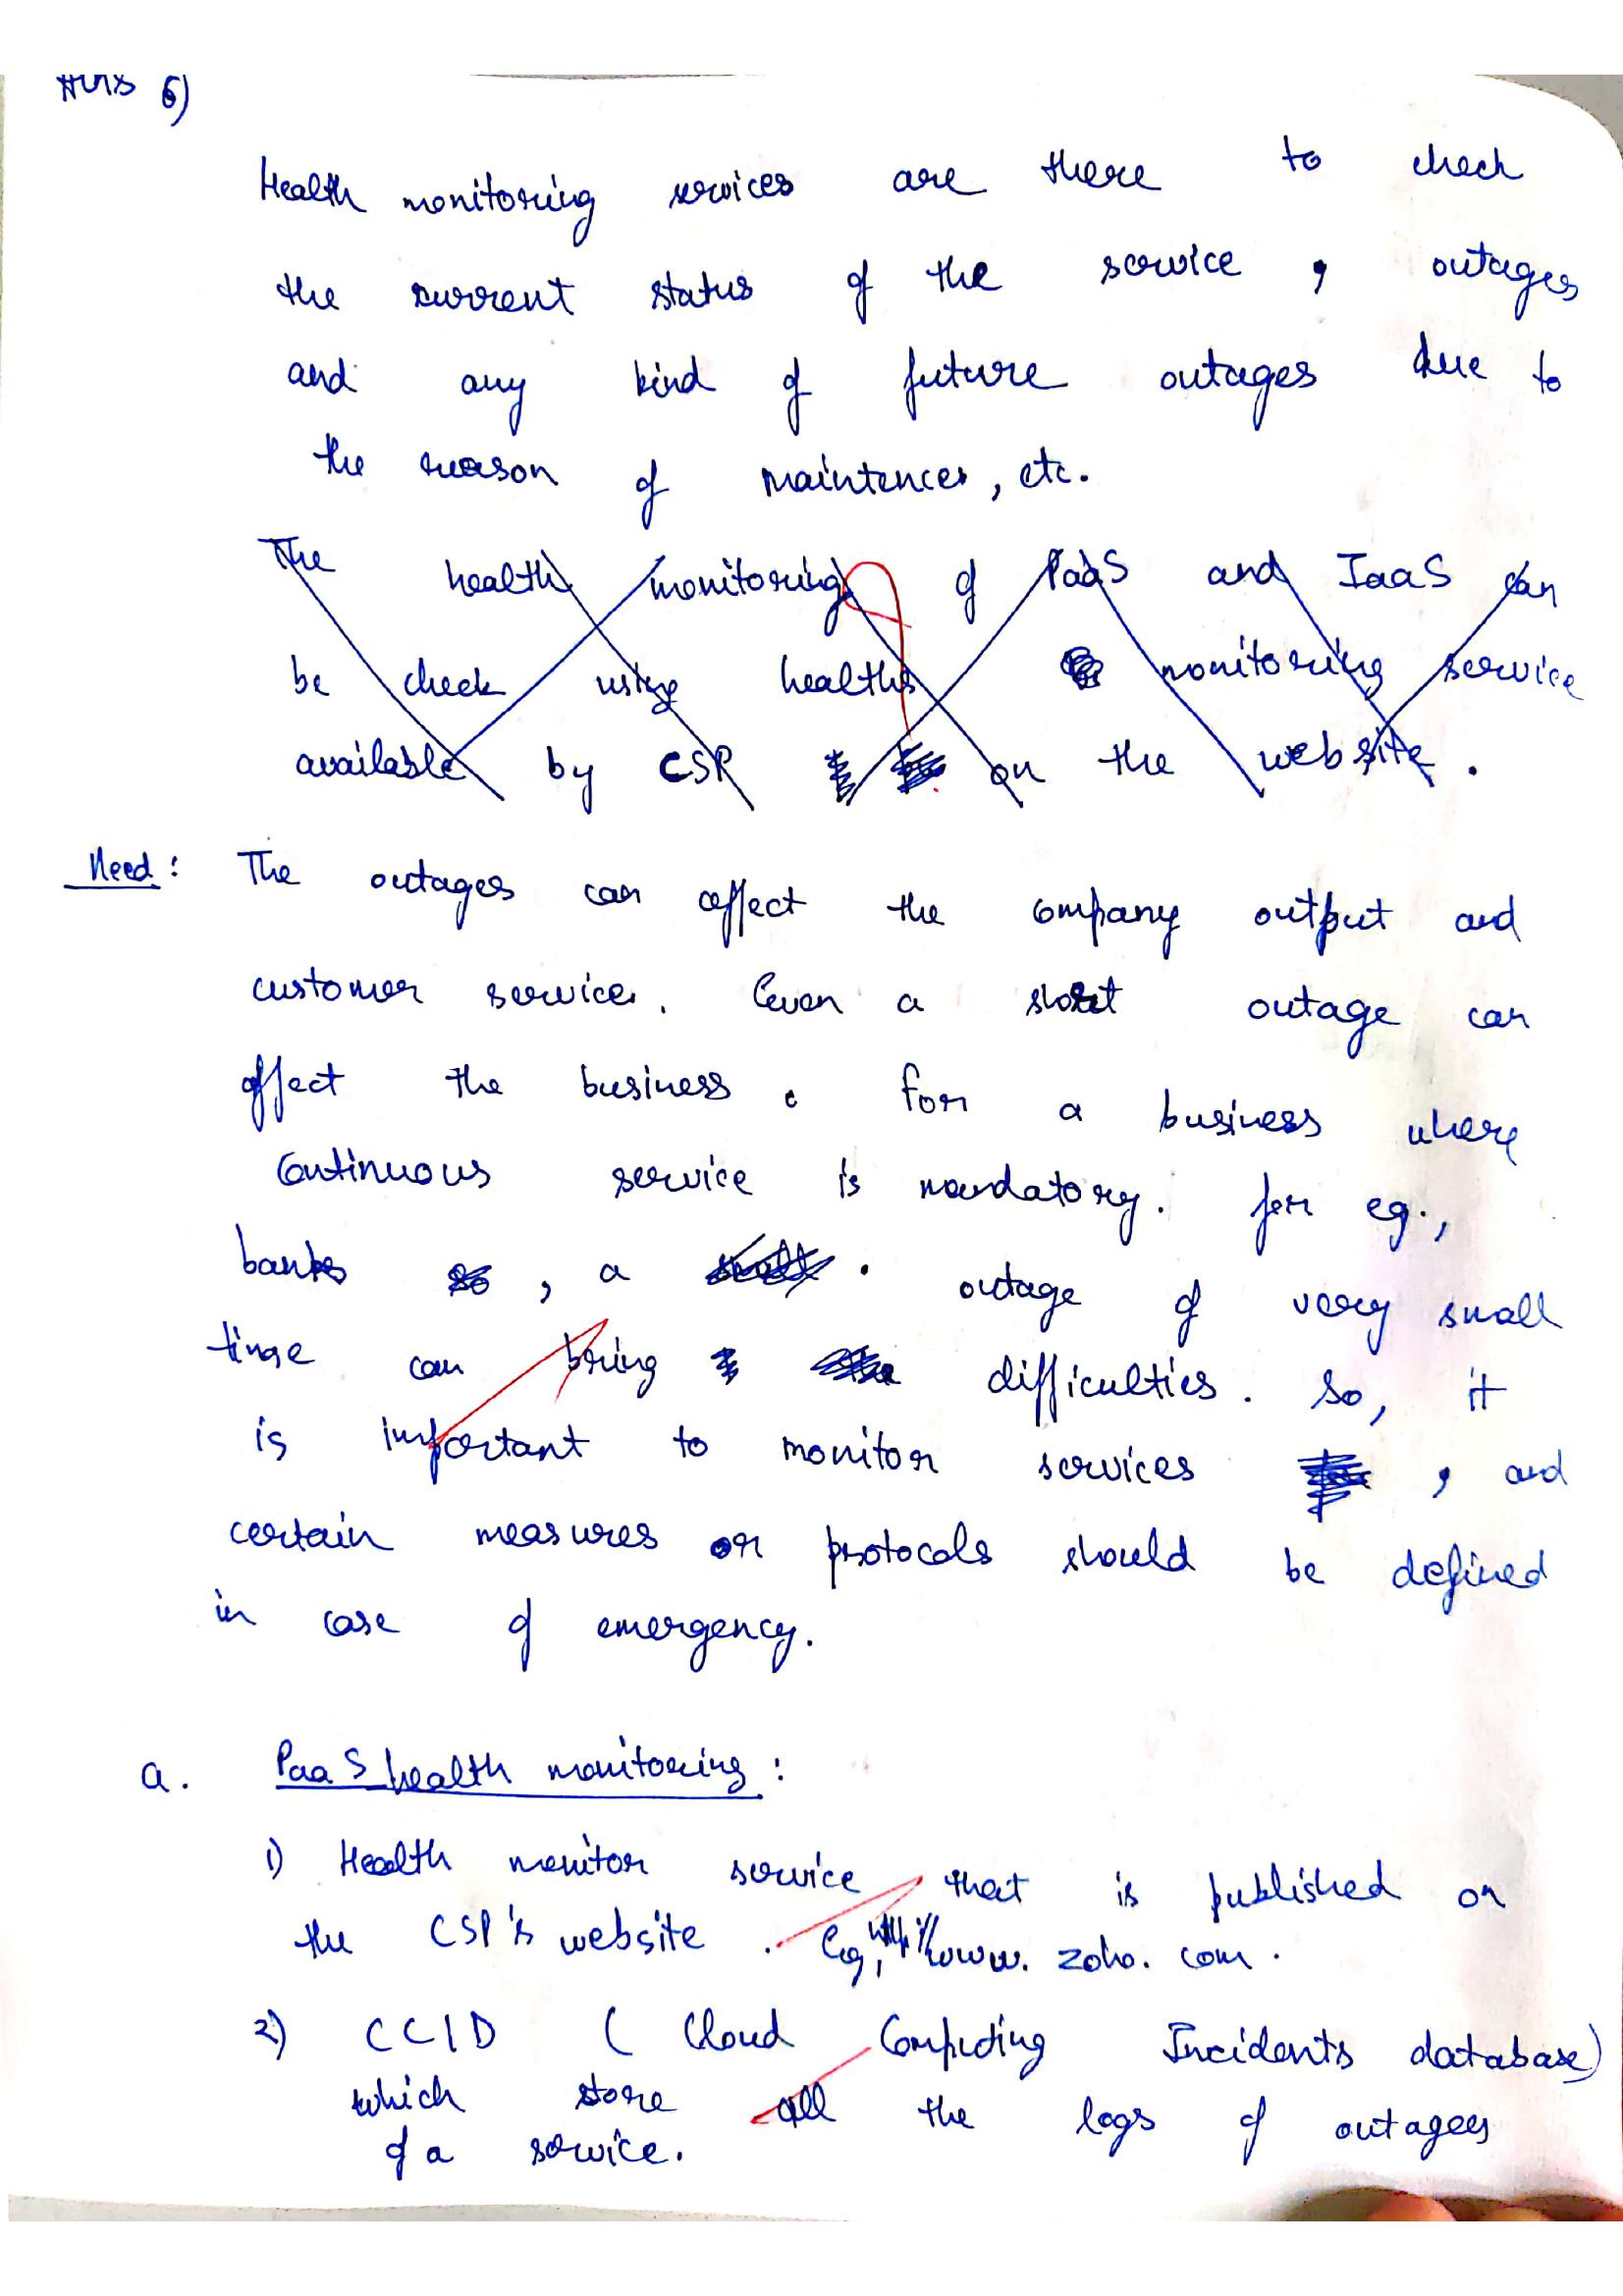 Ans 6)
Health monitoring services are there to check
the current status of the service , outages
and any kind of future outages due to
the reason of maintences, etc.
The health monitoring of PaaS and IaaS can
be check using healths monitoring service
available by CSP on the website.
Need: The outages can affect the company output and
customer service. Even a short outage can
affect the business. For a business where
continuous service is mandatory. for eg.,
banks , a outage of very small
time can bring difficulties. So, it
is important to monitor services , and
certain measures or protocols should be defined
in case of emergency.
a. PaaS health monitoring:
1) Health monitor service that is published on
the CSP's website. Eg, www.zoho.com.
2) CCID ( Cloud Computing Incidents database)
which store all the logs of outages
of a service.